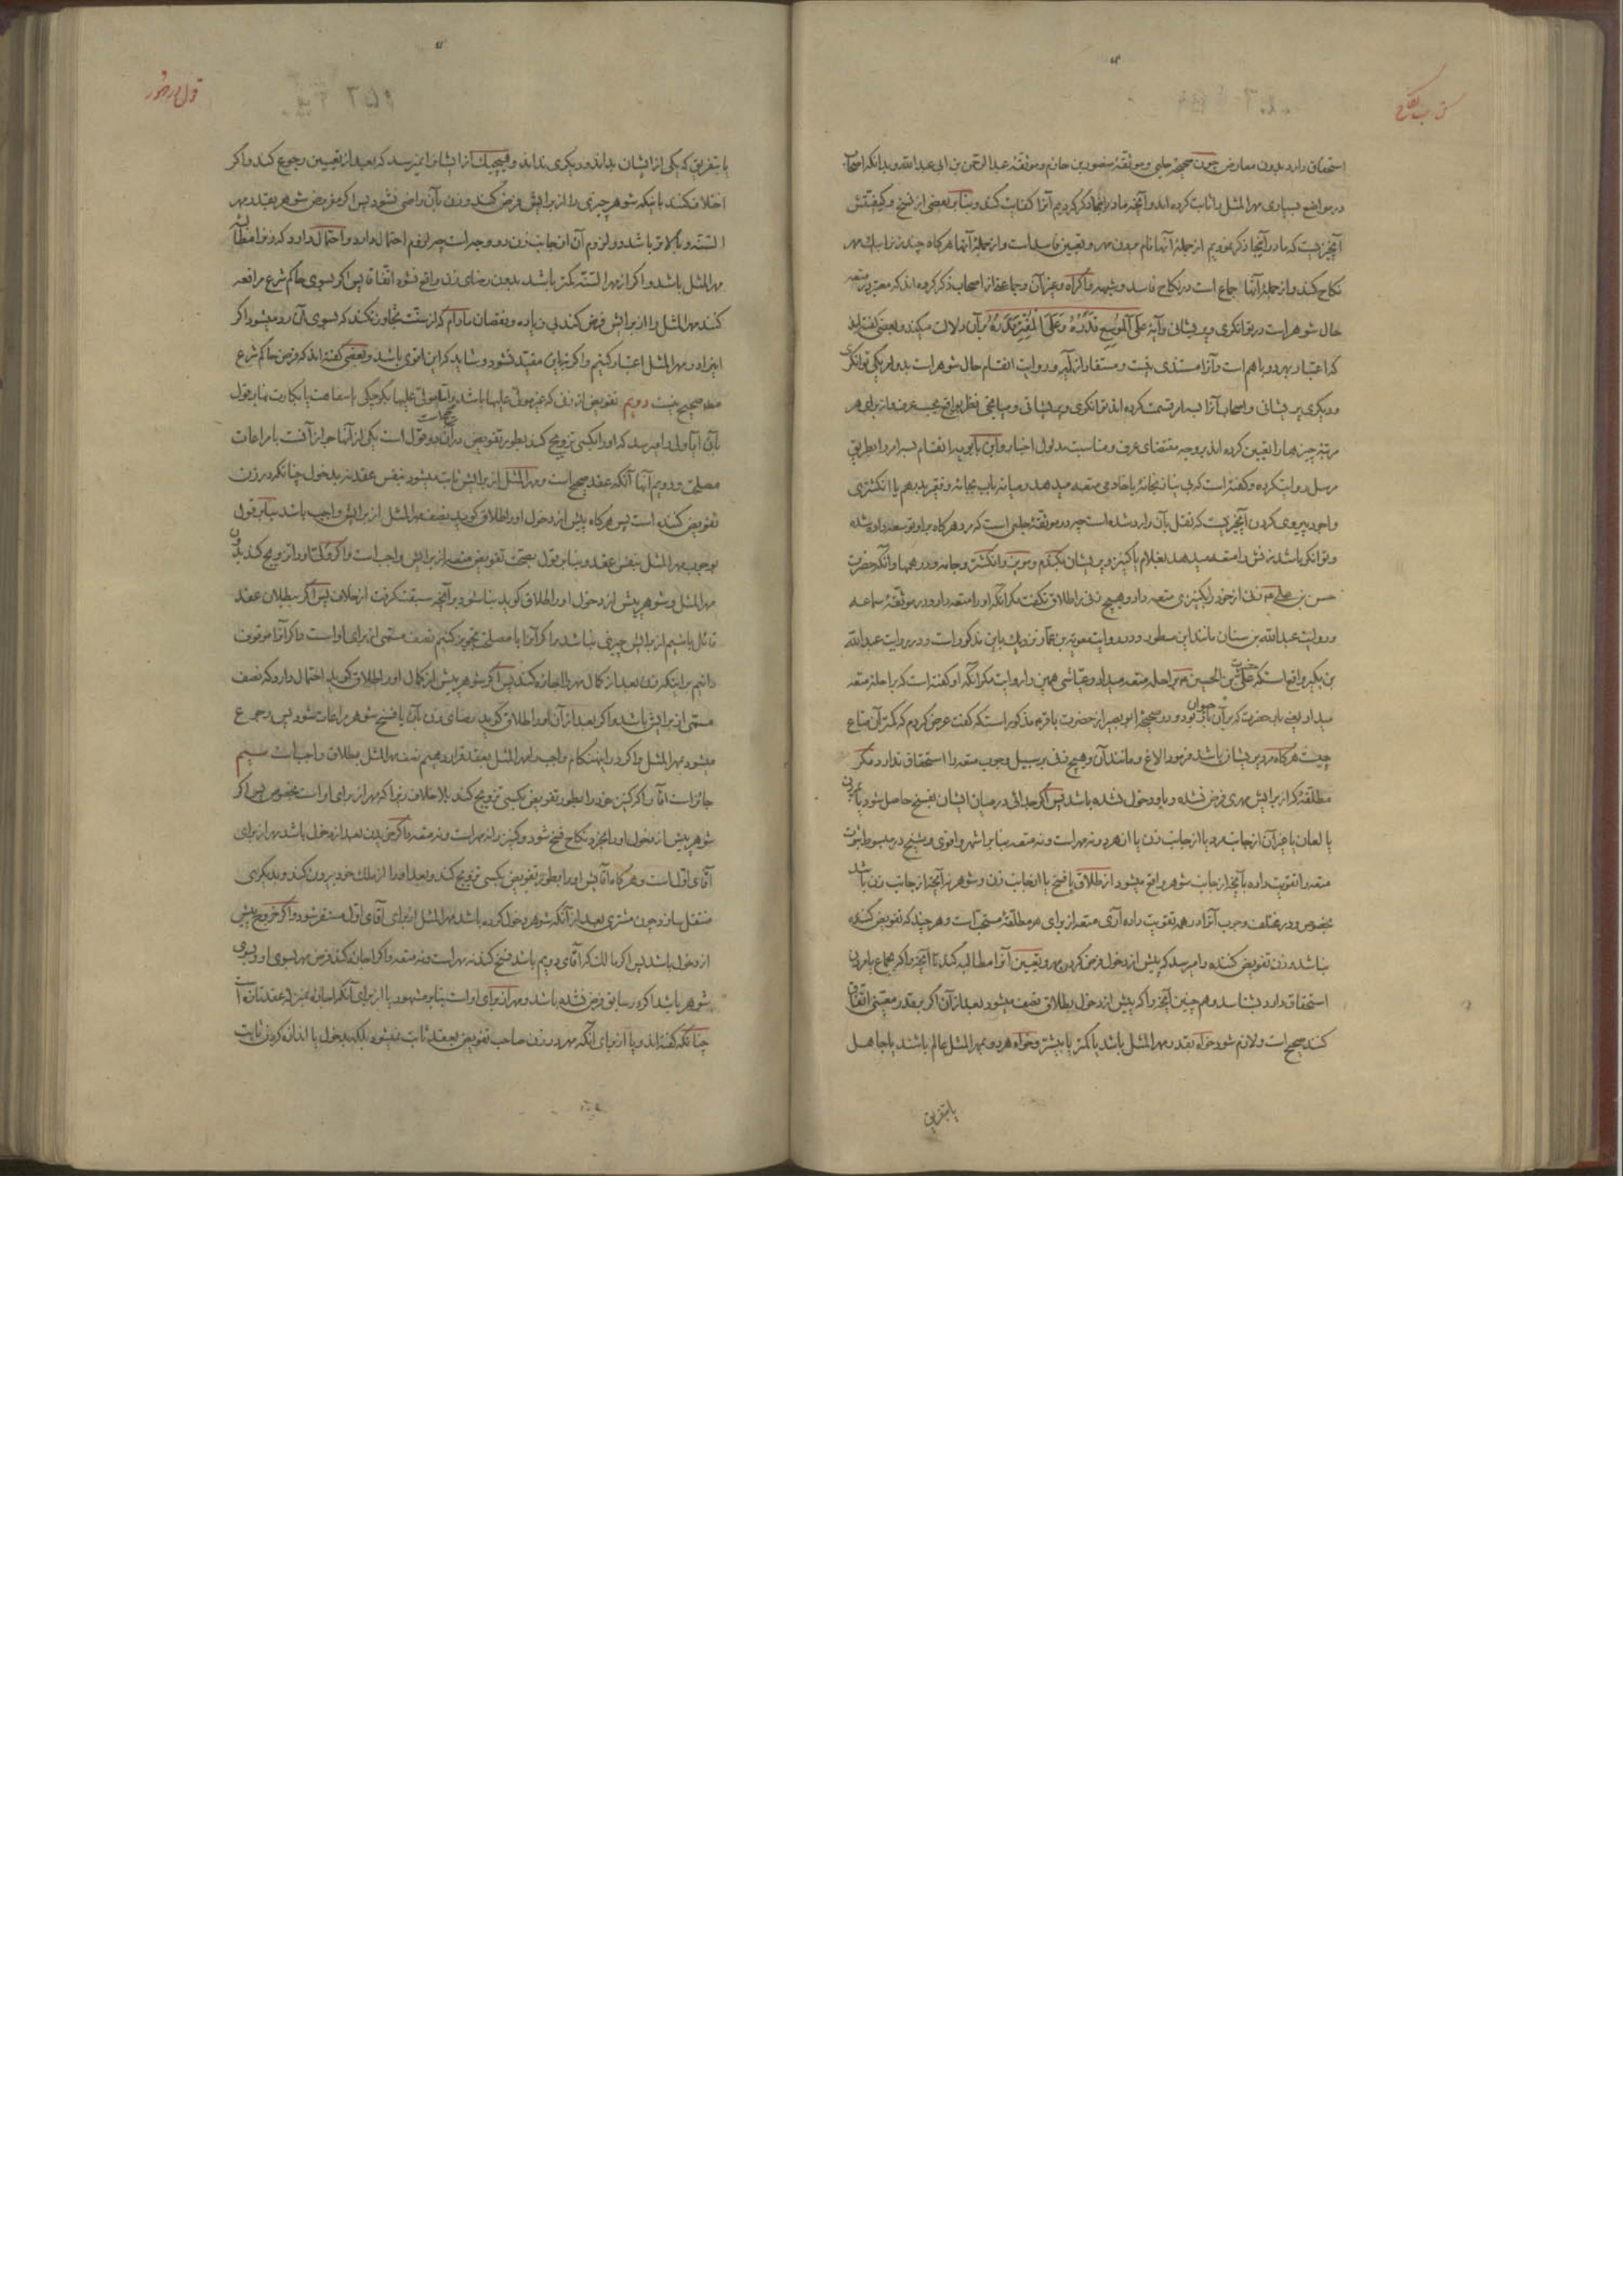 کتاب نکاح
استحقاق دارد بدون معارض چون صحیحهٔ حلبی و موثقهٔ منصور بن حازم و موثقهٔ عبدالرحمن بن ابی عبدالله و بدانکه اصحاب
در مواضع بسیاری مهر المثل را ثابت کرده اند و آنچه ما در اینجا ذکر کردیم آنرا کفایت کند و بنابر بعضی از نسخ و کیفیتش
آنچیزیست که ما در آنجا ذکر نمودیم از جملهٔ آنها نام بردن مهر و تعیین فاسد است و از جملهٔ آنها هرکاه چند زنرا بیک مهر
نکاح کند و از جملهٔ آنها جماع است در نکاح فاسد و شبهه و اکراه و غیر آن و جماعتی از اصحاب ذکر کرده اند که معتبر در متعه
حال شوهر است در توانکری و پریشانی و آیهٔ عَلَی الْمُوسِعِ قَدَرُهُ وَعَلَی الْمُقْتِرِ قَدَرُهُ بر آن دلالت میکند و بعضی کفته اند
که اعتبار بهر دو با هم است و آنرا مستندی نیست و مستفاد از آیه و روایت انقسام حال شوهر است بدو امر یکی توانکری
و دیکری پریشانی و اصحاب آنرا بسه امر قسمت کرده اند توانکری و پریشانی و میانجی نظر بواقع بحسب عرف و از برای هر
مرتبهٔ چیزها را تعیین کرده اند بر وجه مقتضای عرف و مناسبت مدلول اخبار و ابن بابویه انقسام بسه امر را بطریق
مرسل روایت کرده و کفته است که غنی بنا بخانهٔ یا خادمی متعه میدهد و میانه باب بجامهٔ و فقیر بدرهم یا انکشتری
و احوط پیروی کردن آنچیزیست که نقل بآن وارد شده است چه در موثقهٔ حلبی است که مرد هرکاه بر او توسعه داده شده
و توانکر باشد زنش را متعه میدهد بغلام یا کنیز و پریشان بکندم و مویز و انکشتر و جامه و درهمها و آنکه حضرت
حسن بن علی ع م زنی از خود را بکنیزی متعه داد و هیچ زنی را طلاق نکفت مکر آنکه او را متعه داد و در موثقهٔ سماعه
و روایت عبدالله بن سنان مانند این مسطور و در روایت معویة بن عمار نزدیک باین مذکور است و در روایت عبدالله
بن بکیر واقع است که حضرت علی بن الحسین م براحله متعه میداد و عیاشی همین را روایت مکر آنکه او کفته است که براحلهٔ متعه
میداد یعنی باب حضرت که بر آن بار بود و در صحیحهٔ ابو بصیر از حضرت باقر م مذکور است که کفت عرض کردم که کمتر آن متاع
چیست هرکاه مرد پریشان باشد فرمود الاغ و مانند آن و هیچ زنی بر سبیل وجوب متعه را استحقاق ندارد مکر
مطلقهٔ که از برایش مهری فرض نشده و باو دخول نشده باشد پس اکر جدائی در میان ایشان بفسخ حاصل شود یا بمردن
یا لعان یا غیر آن از جانب مرد یا از جانب زن یا از هر دو نه مهر است و نه متعه بنابر اشهر و اقوی و شیخ در مبسوط ثبوت
متعه را تقویت داده بآنچه از جانب شوهر واقع میشود از طلاق یا فسخ یا از جانب زن و شوهر نه آنچه از جانب زن باشد
بخصوص و در مختلف وجوب آنرا در همه تقویت داده آری متعه از برای هر مطلقهٔ مستحب است و هر چند که تفویض کننده
نباشد و زن تفویض کننده را میرسد که پیش از دخول فرض کردن مهر و تعیین آنرا مطالبه کند تا آنچه را که بجماع یا مردن
استحقاق دارد بشناسد و هم چنین آنچه را که پیش از دخول بطلاق نصف میشود بعد از آن اکر بر قدر معینی اتفاق
کنند صحیح است و لازم شود خواه بقدر مهر المثل باشد یا کمتر یا بیشتر و خواه هر دو بمهر المثل عالم باشند یا جاهل
یا بتفریق
یا بتفریق که یکی از ایشان بداند و دیکری نداند و هیچیک از ایشانرا نمیرسد که بعد از تعیین رجوع کند و اکر
اختلاف کنند باینکه شوهر چیزی را از برایش فرض کند و زن بآن راضی نشود پس اکر مفروض شوهر بقدر مهر
السنه و بالاتر باشد در لزوم آن از جانب زن دو وجه است چه لزوم احتمال دارد و احتمال دارد که زنرا مطالبهٔ
مهر المثل باشد و اکر از مهر السنه کمتر باشد بدون رضای زن واقع نشود اتفاقا پس اکر بسوی حاکم شرع مرافعه
کنند مهر المثل را از برایش فرض کند بی زیاده و نقصان مادام که از سنت تجاوز نکند که بسوی آن رد میشود اکر
اینرا در مهر المثل اعتبار کنیم و اکر نه باین مقید نشود و شاید که این اقوی باشد و بعضی کفته اند که فرض حاکم شرع
مهر صحیح نیست دویم تفویض از زنی که غیر مولی علیها باشد و اما مولی علیها بکوچکی یا سفاهت یا بکارت بنابر قول
بآن آیا ولی را میرسد که او را بکسی تزویج کند بطور تفویض در آن دو قول است یکی از آنها جواز آنست با مراعات
مصلحت و دویم آنها آنکه عقد صحیح است و مهر المثل از برایش ثابت میشود بنفس عقد نه بدخول چنانکه در زن
تفویض کننده است پس هرکاه پیش از دخول او را طلاق کوید نصف مهر المثل از برایش واجب باشد بنابر قول
بوجوب مهر المثل بنفس عقد و بنابر قول بصحت تفویض متعه از برایش واجب است و اکر ولی او را تزویج کند بدون
مهر المثل و شوهر پیش از دخول او را طلاق کوید بنا شود بر آنچه سبقت کرفت از خلاف پس اکر ببطلان عقد
قائل باشیم از برایش چیزی نباشد و اکر آنرا با مصلحت تجویز کنیم نصف مسمی از برای او است و اکر آنرا موقوف
دانیم بر اینکه زن بعد از کمال مهر را اجازه کند پس اکر شوهر پیش از کمال او را طلاق کوید احتمال دارد که نصف
مسمی از برایش باشد و اکر بعد از آن او را طلاق کوید رضای زن بآن یا فسخ شوهر مراعات شود پس رجوع
میشود بمهر المثل و اکر در اینهنکام واجب را مهر المثل بعقد قرار دهیم نصف مهر المثل بطلاق واجب است سیم
جائز است آقا را که کنیز خود را بطور تفویض بکسی تزویج کند بلا خلاف زیرا که مهر از برای او است بخصوص پس اکر
شوهر پیش از دخول او را بخرد نکاح فسخ شود و کنیز را نه مهر است و نه متعه و اکر خریدن بعد از دخول باشد مهر از برای
آقای اول است و هرکاه آقایش او را بطور تفویض بکسی تزویج کند و بعد او را از ملک خود بیرون کند و بدیکری
منتقل سازد چون مشتری بعد از آنکه شوهر دخول کرده باشد مهر المثل از برای آقای اول مستقر شود و اکر خروج پیش
از دخول باشد پس اکر مالک که آقای دویم باشد فسخ کند نه مهر است و نه متعه و اکر اجازه کند فرض مهر بسوی او و بسوی
شوهر باشد اکر در سابق فرض نشده باشد و مهر از برای او است بنابر مشهور یا از برای آنکه اجازه بمنزلهٔ عقد تازه است
چنانکه کفته اند و یا از برای آنکه مهر در زن صاحب تفویض بعقد ثابت نمیشود بلکه بدخول یا اندازه کردن ثابت